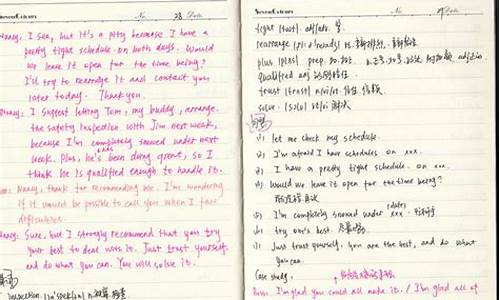 SevenColours No. 28 Date
Nancy, I see, but it's a pity because I have a
pretty tight schedule on both days. Would
we leave it open for the time being?
I'll try to rearrange it and contact you
later today. Thank you.
I suggest letting Tom, my buddy, arrange
the safety inspection with Jim next week,
because I'm completely snowed under next
week. Plus, he's been doing great, so I
think he is qualified enough to handle it.
Nancy, thank for recommending me. I'm wondering
if it would be possible to call you when I face
difficulties.
Nancy: Sure, but I strongly recommend that you try
your best to deal with it. Just trust yourself,
and do what you can. You will solve it.
inspection
SevenColours No. Date
tight adj/adv. 紧
rearrange
plus prep.
qualified adj
trust n/vi/vt 信任
solve vt/vi 解决
(1) let me check my schedule.
(2) I'm afraid I have schedules on xxx.
(3) I have a pretty tight schedule on xxx.
(4) Would we leave it open for the time being?
(5) I'm completely snowed under xxx (date)
(6) try one's best. 尽某所能
(7) Just trust yourself. You are the best, and do what
you can.
Case study.
Boss: I'm glad you could all make it. / I'm glad all of